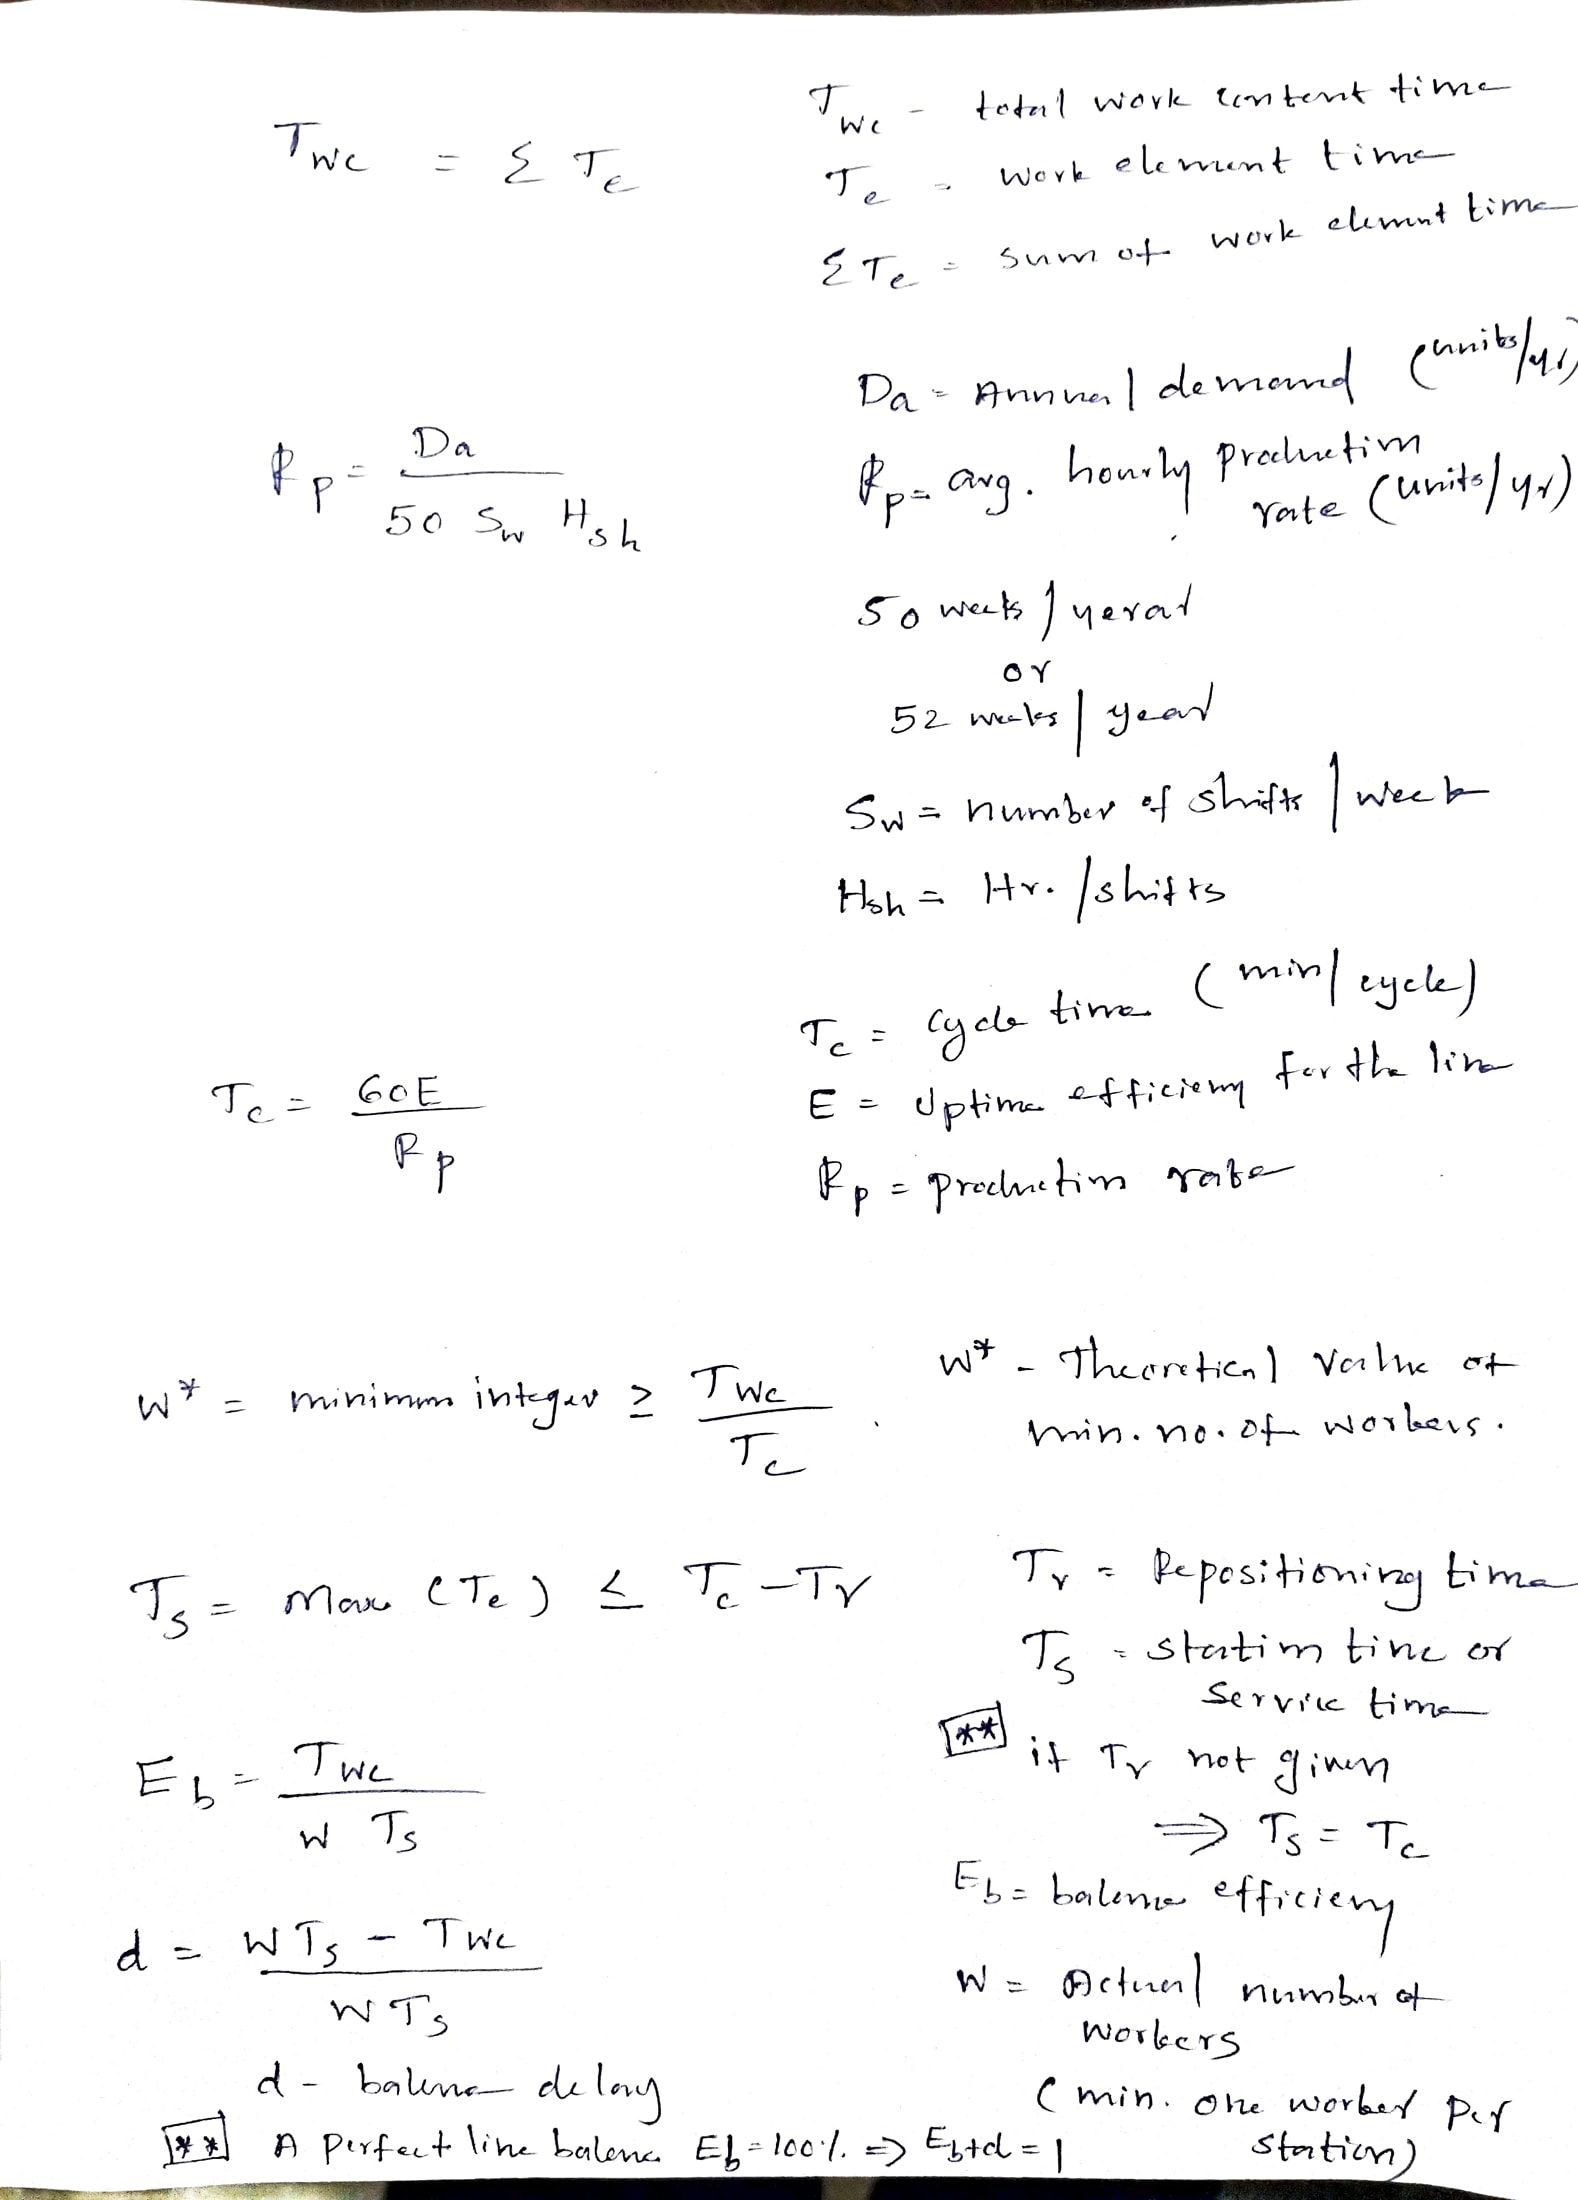 T_wc = Σ T_e
T_wc - total work content time
T_e = work element time
Σ T_e = sum of work elemnt time
Da = Annual demand (units/yr)
R_p = Da / 50 S_w H_sh
R_p = avg. hourly production
rate (units/yr)
50 weeks / yerar
or
52 weeks / year
S_w = number of shifts / week
H_sh = Hr. / shifts
T_c = 60E / R_p
T_c = cycle time (min/cycle)
E = Uptime efficiency for the line
R_p = production rate
w* = minimum integer ≥ T_wc / T_c
w* - Theoretical value of
min. no. of workers.
T_s = Max (T_e) ≤ T_c - T_r
T_r = Repositioning time
T_s = station time or
service time
** if T_r not given
⇒ T_s = T_c
E_b = T_wc / w T_s
E_b = balance efficiency
W = Actual number of
workers
(min. one worker per
station)
d = W T_s - T_wc / W T_s
d - balance delay
** A perfect line balance E_b = 100% ⇒ E_b + d = 1